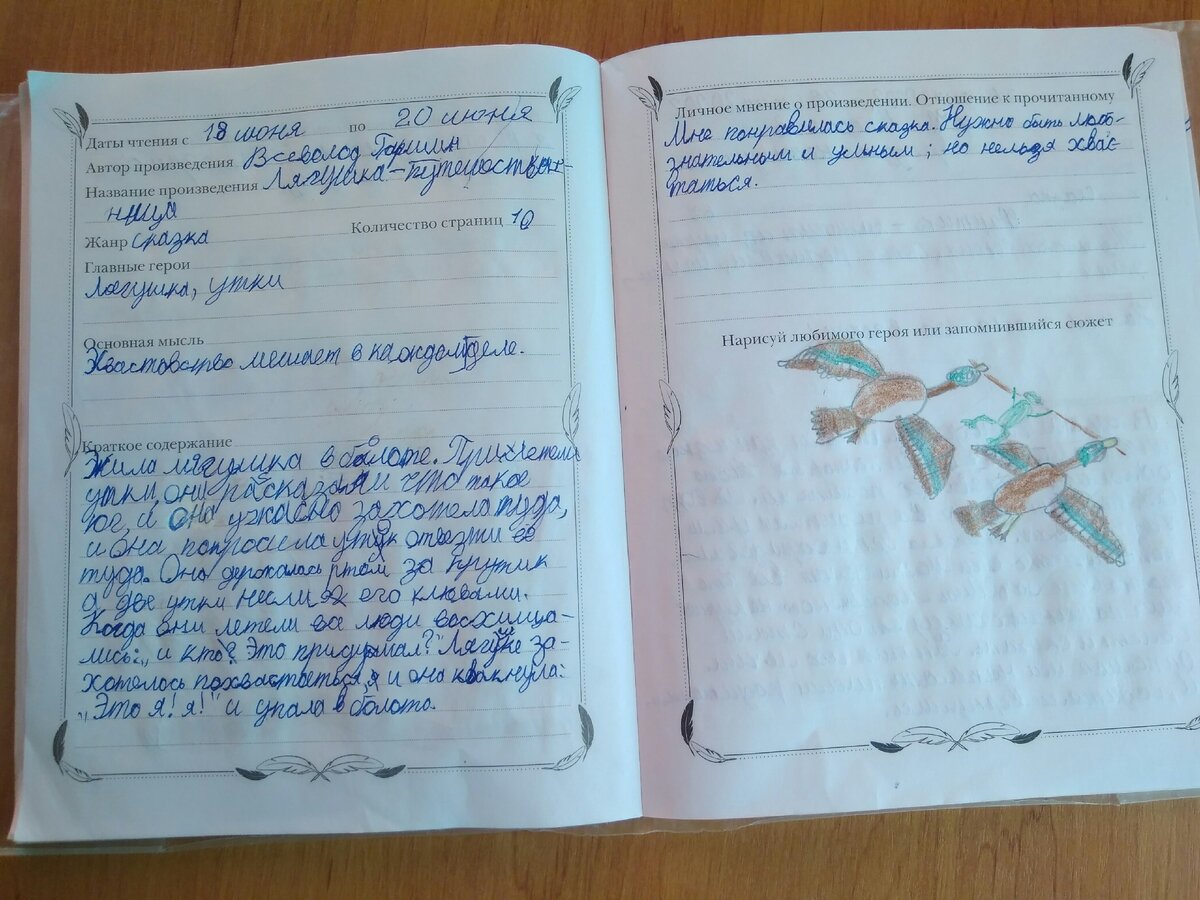 Даты чтения с 18 июня по 20 июня
Автор произведения Всеволод Гаршин
Название произведения Лягушка-путешествен-
ница
Жанр сказка Количество страниц 10
Главные герои
Лягушка, утки
Основная мысль
Хвастовство мешает в каждом деле.
Краткое содержание
Жила лягушка в болоте. Прилетели
утки, они рассказали что такое
юг, и она ужасно захотела туда,
и она попросила уток отвезти её
туда. Она держалась ртом за прутик
а две утки несли его клювами.
Когда они летели все люди восхища-
лись: „и кто? Это придумал?" Лягушке за-
хотелось похвастаться, и она квакнула:
„Это я! я!" и упала в болото.
Личное мнение о произведении. Отношение к прочитанному
Мне понравилась сказка. Нужно быть любо-
знательным и умным; но нельзя хвас-
таться.
Нарисуй любимого героя или запомнившийся сюжет